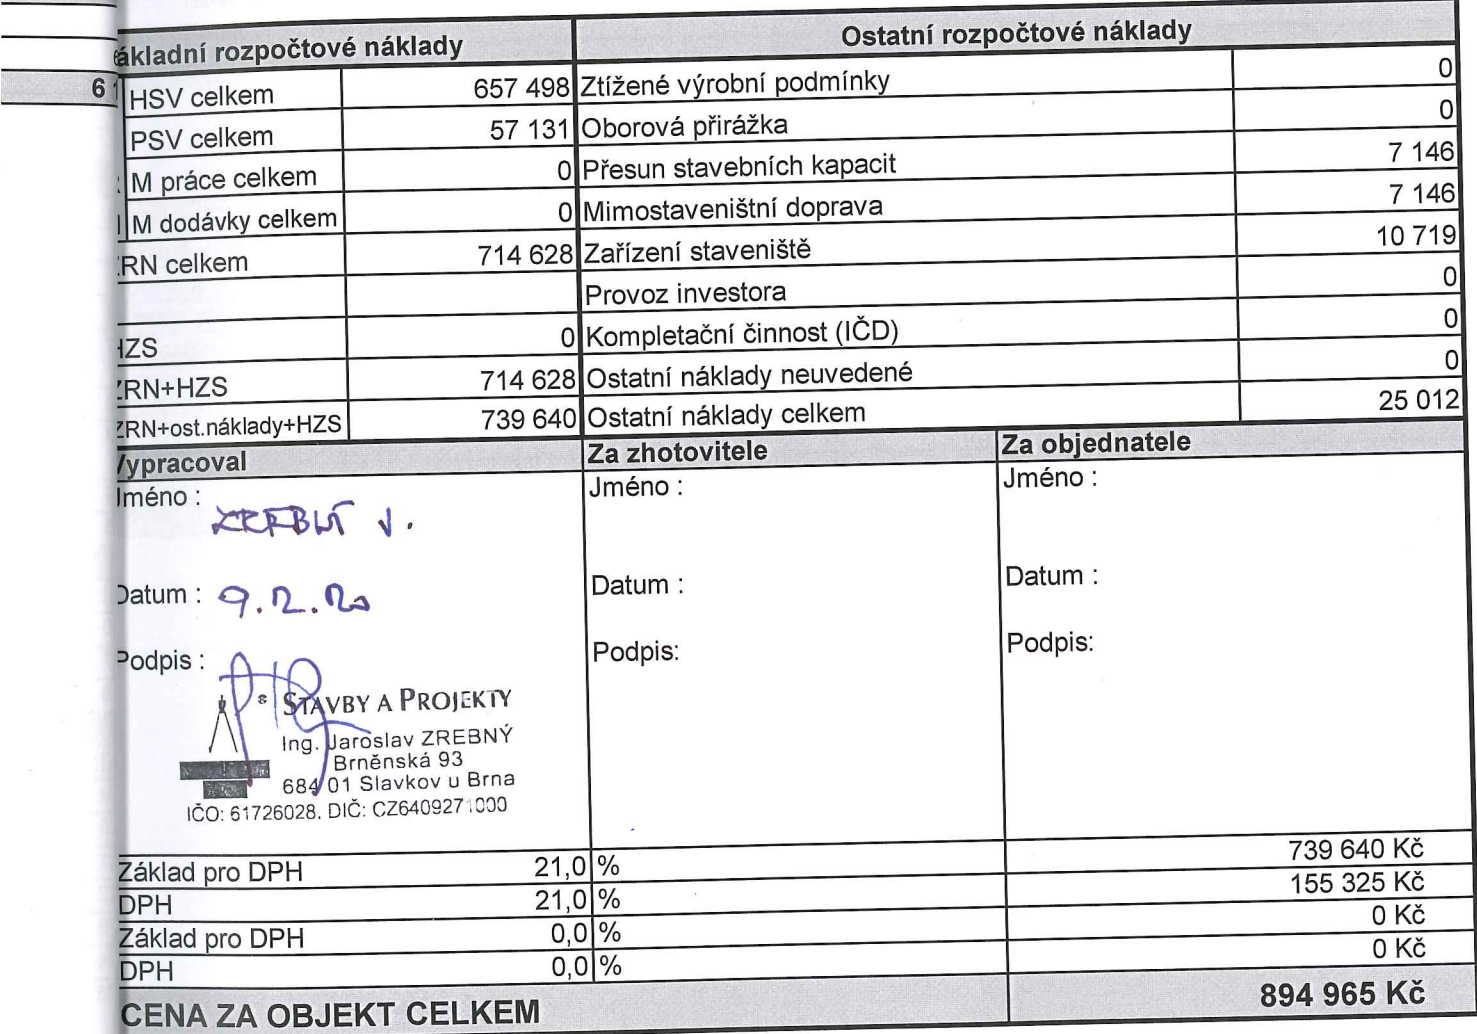 ákladní rozpočtové náklady Ostatní rozpočtové náklady
6 HSV celkem 657 498 Ztížené výrobní podmínky 0
PSV celkem 57 131 Oborová přirážka 0
M práce celkem 0 Přesun stavebních kapacit 7 146
M dodávky celkem 0 Mimostaveništní doprava 7 146
RN celkem 714 628 Zařízení staveniště 10 719
Provoz investora 0
HZS 0 Kompletační činnost (IČD) 0
ZRN+HZS 714 628 Ostatní náklady neuvedené 0
ZRN+ost.náklady+HZS 739 640 Ostatní náklady celkem 25 012
Vypracoval Za zhotovitele Za objednatele
Jméno : Jméno : Jméno :
ZREBNÝ J.
Datum : 9.12.20 Datum : Datum :
Podpis : Podpis: Podpis:
STAVBY A PROJEKTY
Ing. Jaroslav ZREBNÝ
Brněnská 93
684 01 Slavkov u Brna
IČO: 61726028, DIČ: CZ6409271000
Základ pro DPH 21,0 % 739 640 Kč
DPH 21,0 % 155 325 Kč
Základ pro DPH 0,0 % 0 Kč
DPH 0,0 % 0 Kč
CENA ZA OBJEKT CELKEM 894 965 Kč